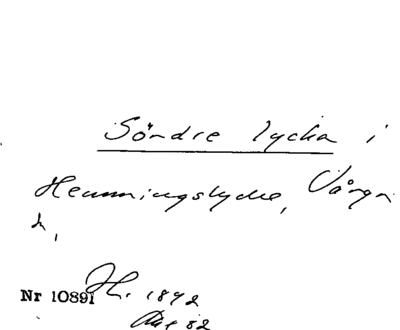 Söndre lycka i
Henningslycke, Vånga
h,
Nr 10891 H. 1892
82